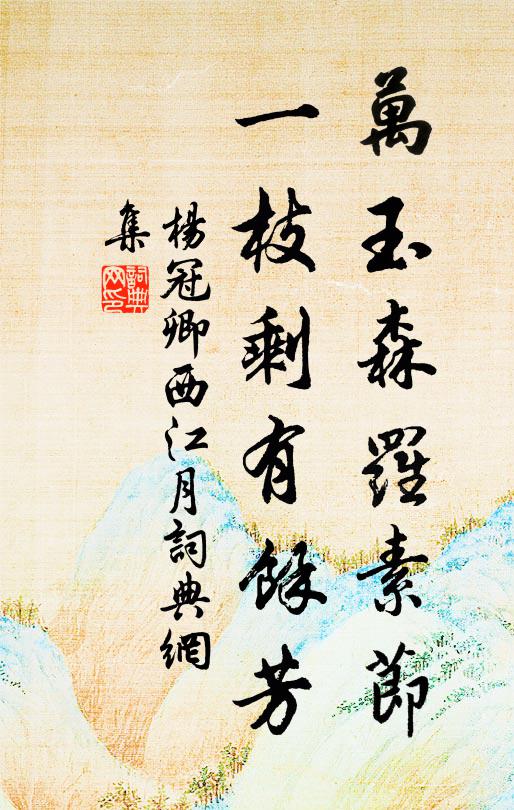 萬玉森羅素節
一枝剩有餘芳
楊冠卿西江月詞典網
集
詞典網印